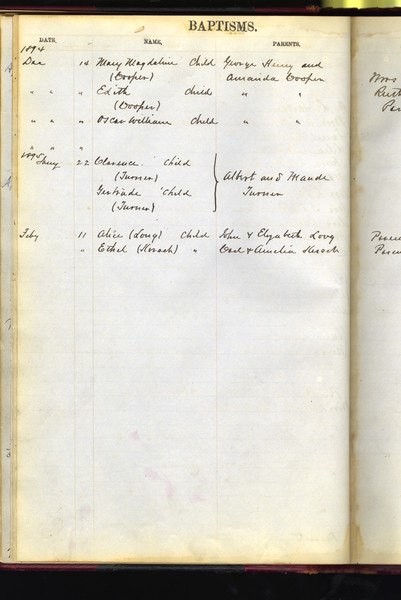 BAPTISMS.
DATE. NAME. PARENTS.
1894
Dec 14 Mary Magdaline Child George Henry and
(Cooper) Amanda Cooper
" " " Edith Child " "
(Cooper)
" " " Oscar William Child " "
" " "
1895
Jany 22 Clarence Child
(Turner) Albert and Maude
Gertrude Child Turner
(Turner)
Feby 11 Alice (Long) Child John & Elizabeth Long
" Ethel " & Amelia
Mrs